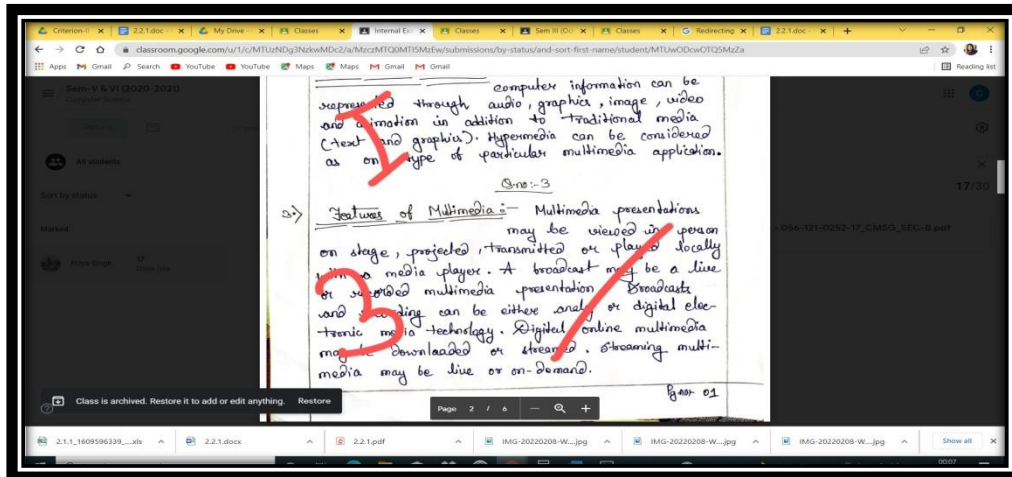 Criterion-II
2.2.1.doc -
My Drive -
Classes
Internal Exa
Classes
Sem III (DC
Classes
Redirecting
2.2.1.doc -
classroom.google.com/u/1/c/MTUzNDg3NzkwMDc2/a/MzczMTQ0MTI5MzEw/submissions/by-status/and-sort-first-name/student/MTUwODcwOTQ5MzZa
Apps Gmail Search YouTube YouTube Maps Maps Gmail Gmail Reading list
Sem-V & VI (2020-2021)
Computer Science
All students
Sort by status
Marked
Priya Singh 17
17/30
056-121-0252-17_CMSG_SEC-B.pdf
computer information can be
represented through audio, graphics, image, video
and animation in addition to traditional media
(text and graphics). Hypermedia can be considered
as one type of particular multimedia application.
1
Q.no:-3
3.) Features of Multimedia :- Multimedia presentations
may be viewed in person
on stage, projected, transmitted or played locally
with a media player. A broadcast may be a live
or recorded multimedia presentation. Broadcasts
and recording can be either analog or digital elec-
tronic media technology. Digital online multimedia
may be downloaded or streamed. Streaming multi-
media may be live or on-demand.
3
Pg.no:- 01
Class is archived. Restore it to add or edit anything. Restore
Page 2 / 6
2.1.1_1609596339_....xls
2.2.1.docx
2.2.1.pdf
IMG-20220208-W....jpg
IMG-20220208-W....jpg
IMG-20220208-W....jpg
Show all
00:07